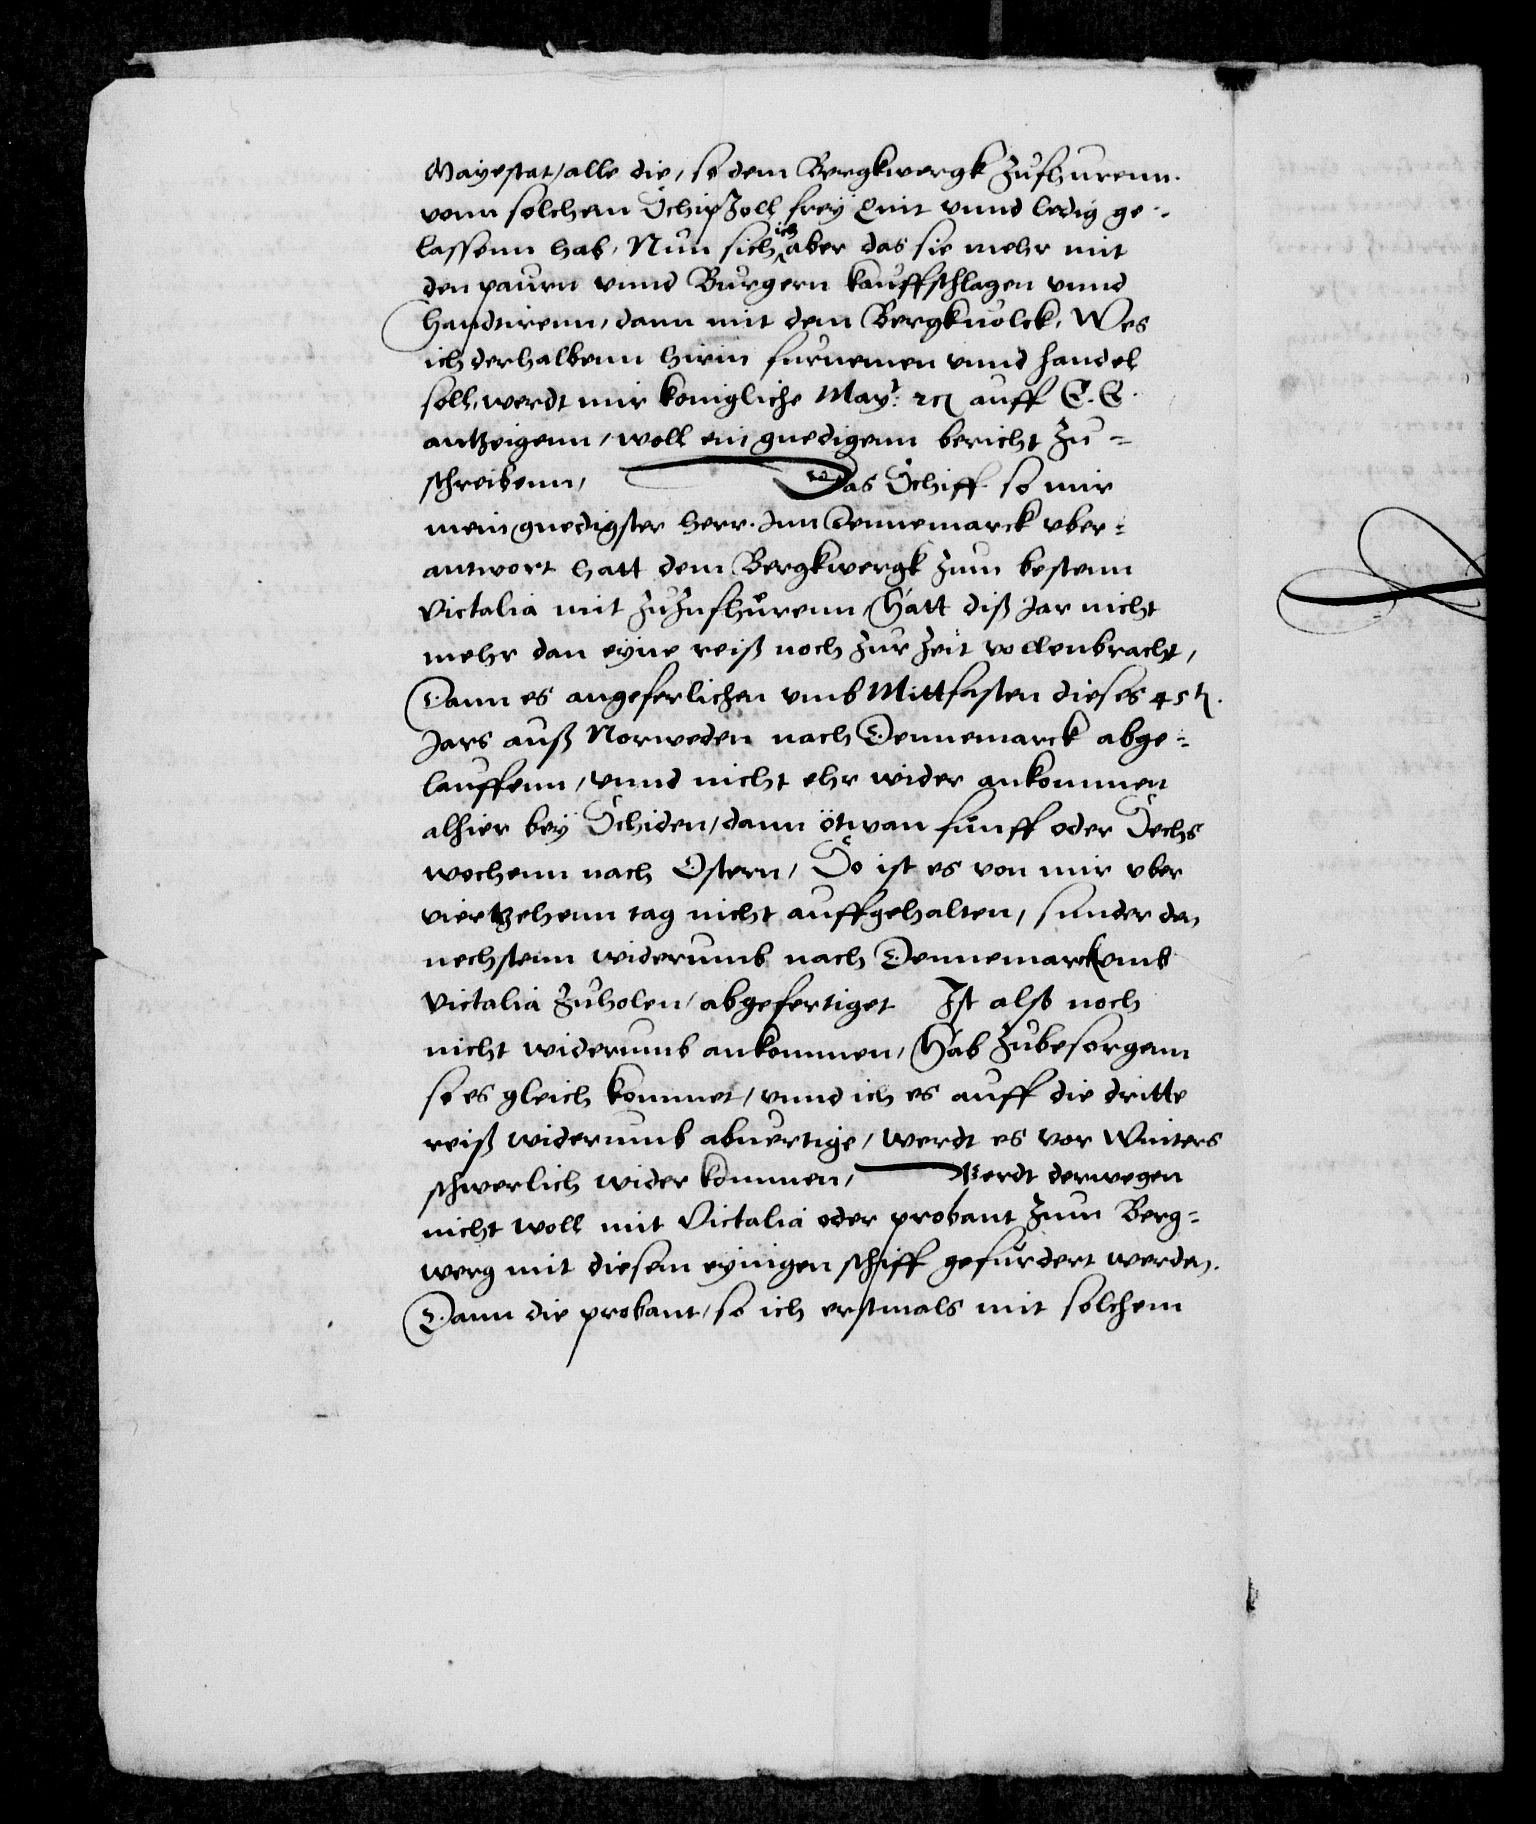 Mayestat, alle die, so dem Bergkwergk zufhurenn.
vonn solchem Schipzoll frey Quit vnnd ledig ge-
lassenn hab, Nun sich ich aber das sie mehr mit
den paurn vnnd Burgern kauffschlagen vnnd
handtirenn, dann mit dem Bergkuolck, Wes
ich derhalbenn hirin furnemen vnnd handel
soll, werdt mir konigliche Mayt: rc auff E. E.
antzeigenn, woll ein gnedigenn bericht zu-
schreibenn, Das Schiff so mir
mein gnedigster herr. Inn Dennemarck vber-
antwort hatt dem Bergkwergk zum bestenn
Victalia mit zuzufhurenn, Hatt diß Jar nicht
mehr dan eyne reiß noch zur Zeit vollenbracht,
Dann es angeferlichen vmb Mittfasten dieses 45ten.
Jars auß Norweden nach Dennemarck abge-
lauffenn, vnnd nicht ehr wider ankommen
alhier bey Schiden, dann ötwan funff oder Sechs
wochenn nach Ostern, So ist es von mir vber
viertzehenn tag nicht auffgehalten, sunder den
nechstenn widerumb nach Dennemarck vmb
Victalia zuholen, abgefertiget Ist also noch
nicht widerumb ankommen, Hab zubesorgenn
so es gleich kommet, vnnd ich es auff die dritte
reiß widerumb abuertige, werdt es vor Winters
schwerlich wider kommen, Werdt derwegen
nicht woll mit Victalia oder probant zum Berg-
werg mit diesem eynigen schiff gefurdert werden.
Dann die probant, so ich erstmals mit solchem